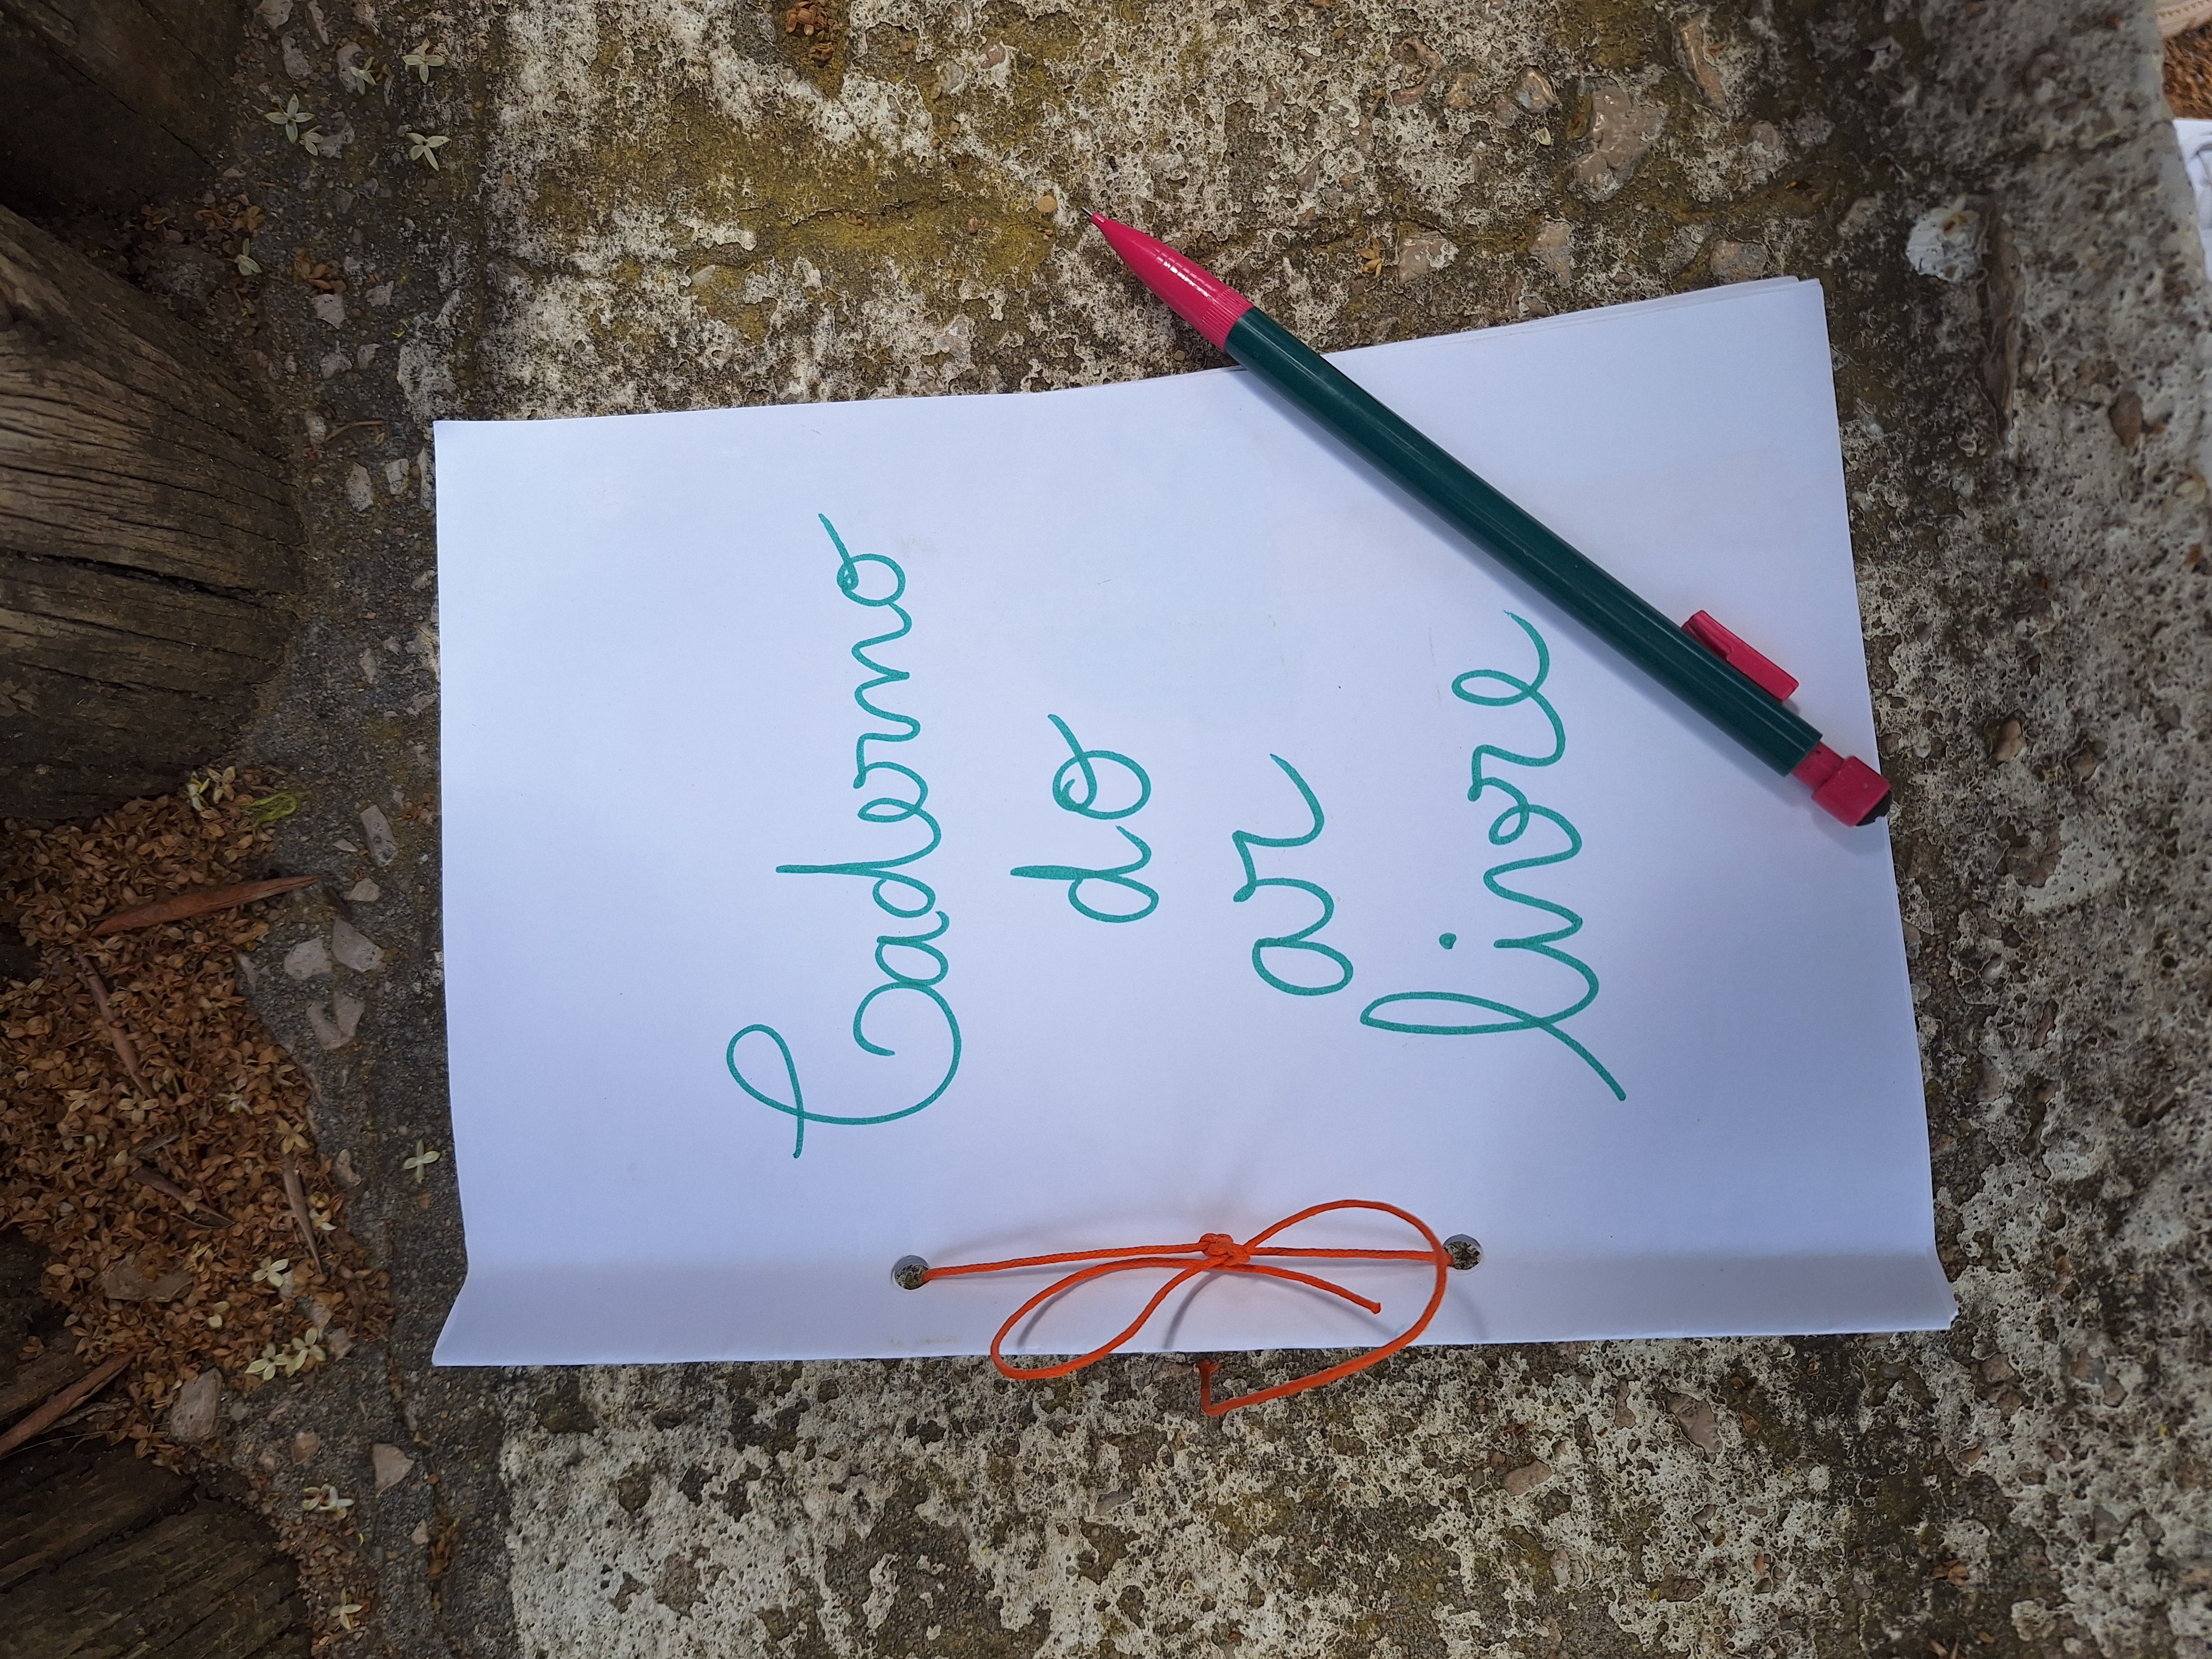 Caderno
do
ar
livre